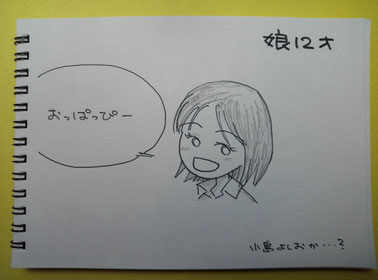 娘12才
おっぱっぴー
小島よしおか…?